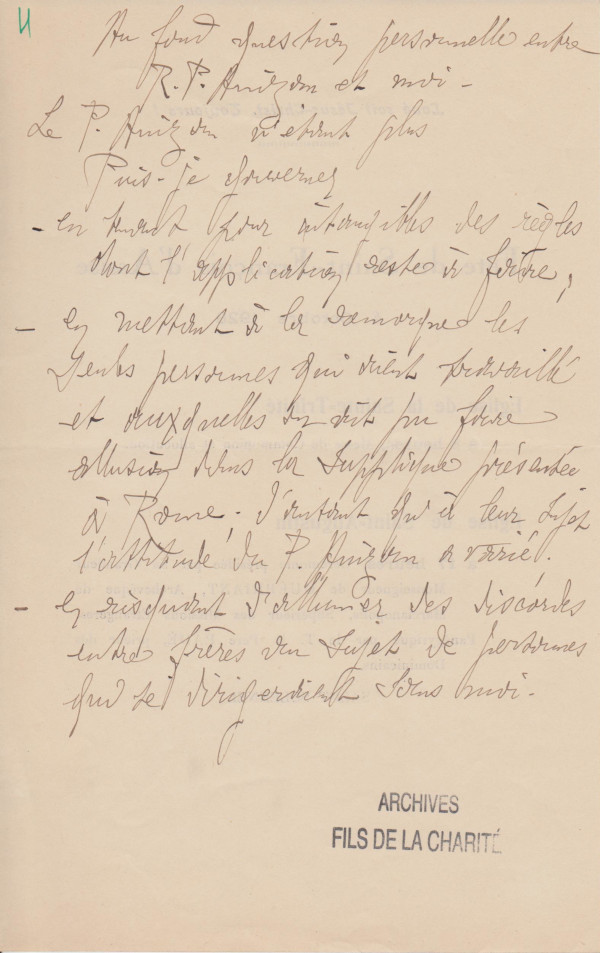 4
Au fond question personnelle entre
R.P. Anizan et moi -
Le P. Anizan n'étant plus
Puis-je gouverner
- en tenant pour intangibles des règles
dont l'application reste à faire,
- en mettant à la remorque les
seules personnes qui aient travaillé
et auxquelles on ait pu faire
allusion dans la supplique présentée
à Rome - d'autant qu'à leur sujet
l'attitude du P. Anizan a varié.
- en risquant d'allumer des discordes
entre frères au sujet de personnes
qui se dirigeraient sans moi -
ARCHIVES
FILS DE LA CHARITÉ